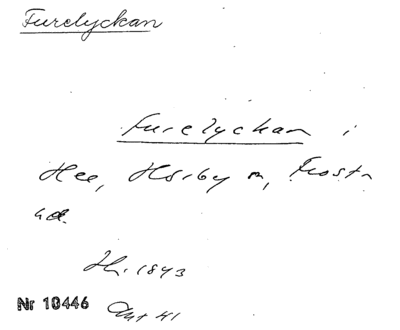 Furelyckan
Furelyckan i
Hee, Hörby sn, Frosta
hd.
Hh. 1843
Nr 10446 Akt 41